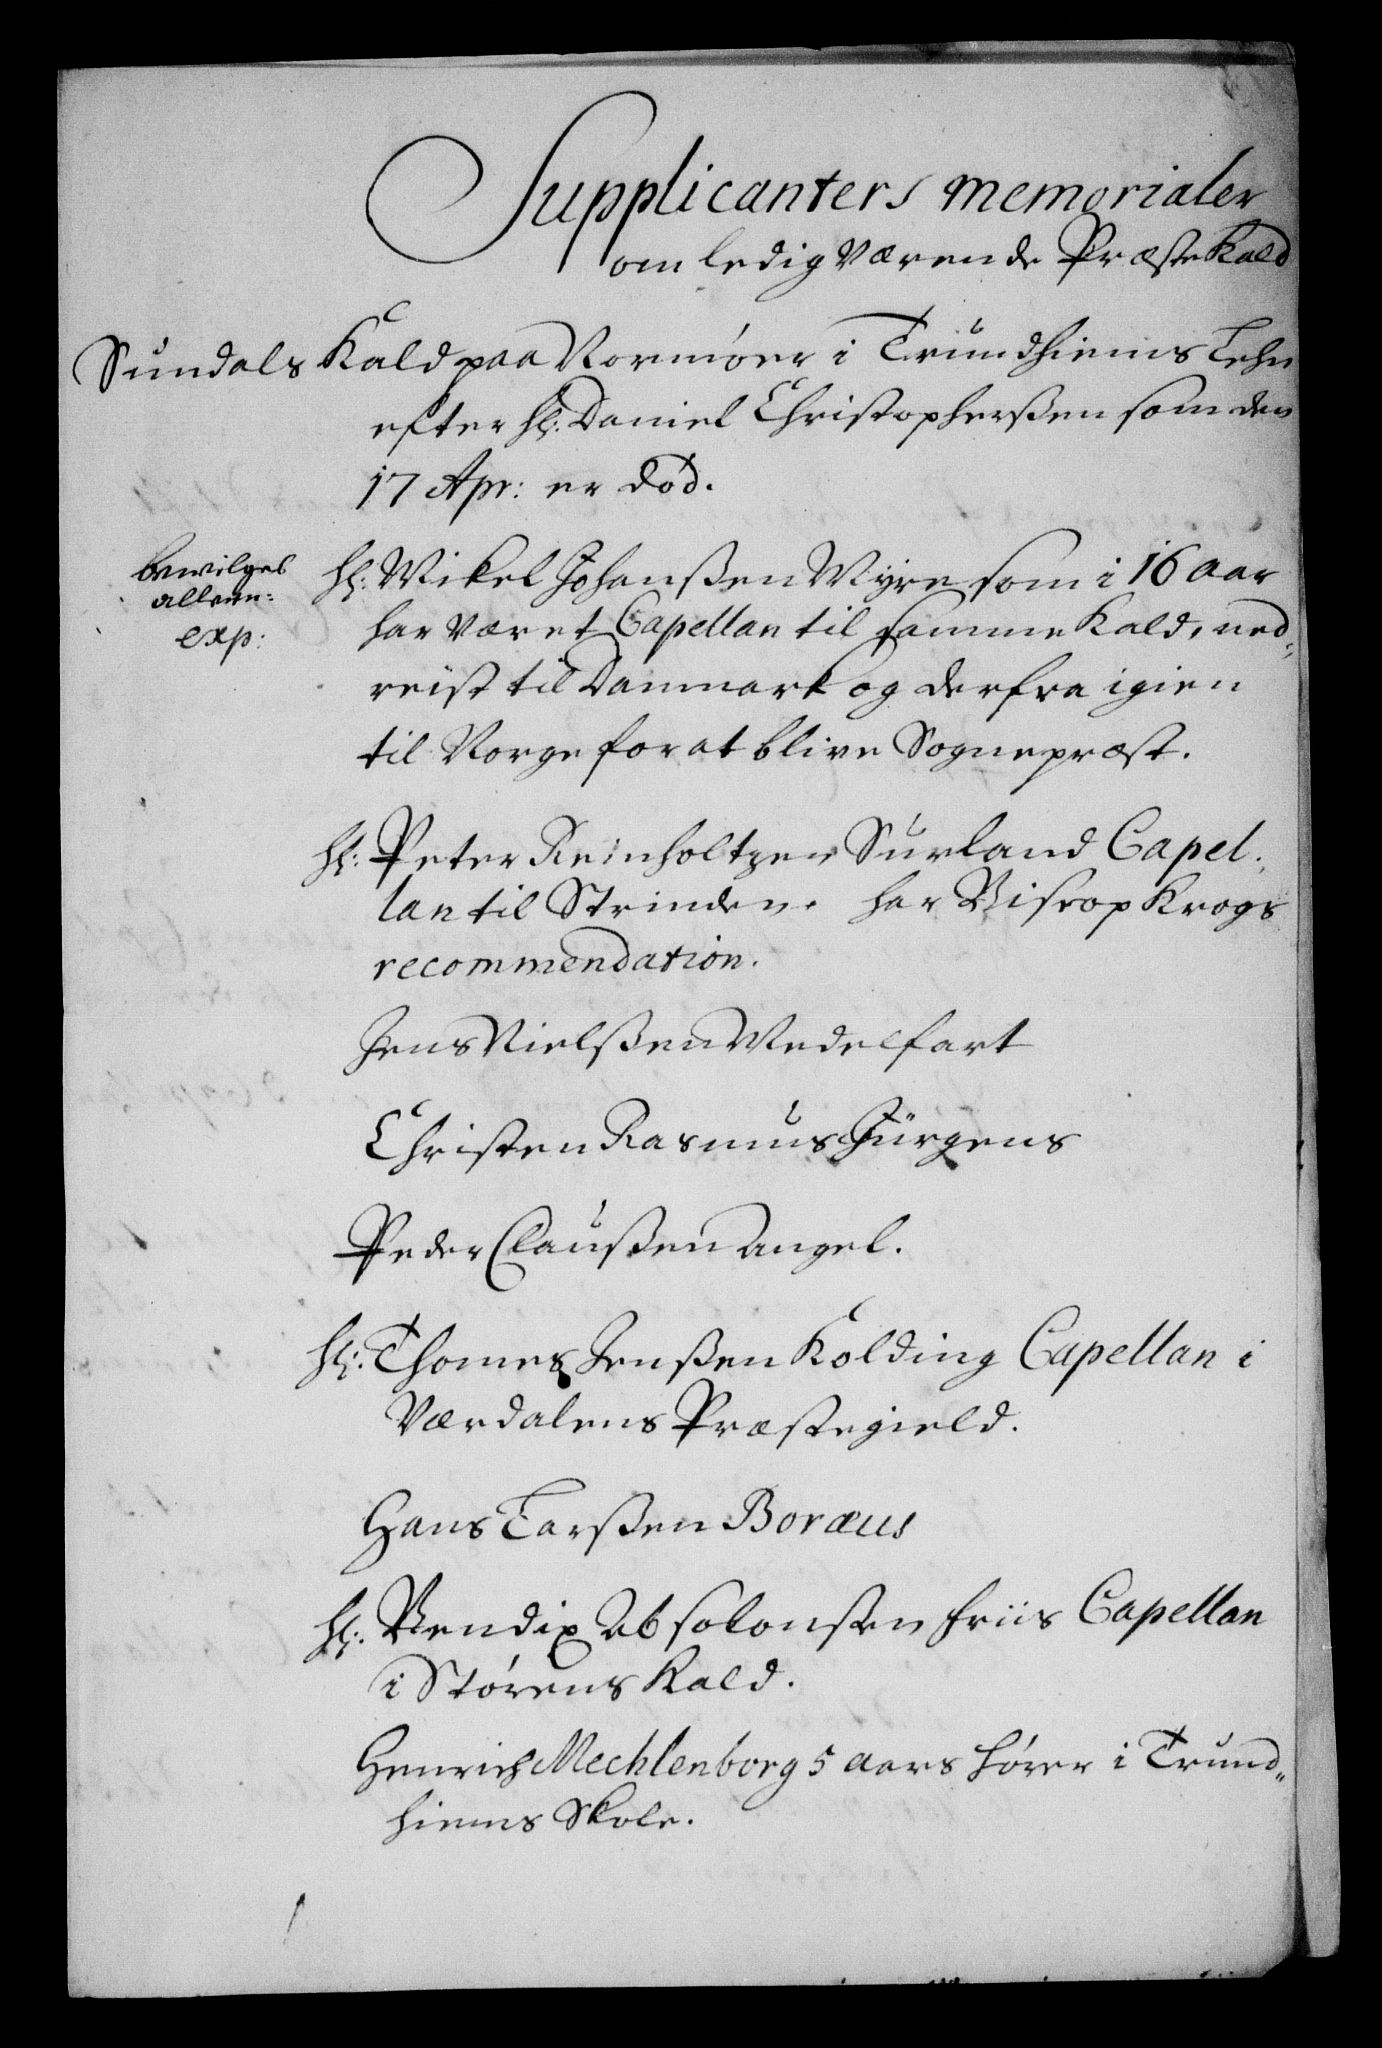 Supplicanters memorialer
om ledig værende Præste Kald
Sundals Kald paa Normøer i Trundhiems Lehn
efter Hr: Daniel Christopherßen som den
17 Apr: er død.
bewilges
alleene
exp:
Hr: Mikel Johanßen Myre som i 16 aar
har været Capellan til samme Kald, ned-
reist til Danmark og derfra igien
til Norge for at blive Sognepræst.
Hr: Peter Reinholtzen Surland Capel-
lan til Strinden. har Biscop Krogs
recommendation.
Jens Nielßen Medelfart
Christen Rasmus Jürgens
Peder Claußen Angel.
Hr: Thomes Jenßen Kolding Capellan i
Værdalens Præstegield.
Hans Larßen Boræus
Hr: Bendix Absolonsen Friis Capellan
i Størens Kald.
Henrich Mechlenborg 5 aars Hører i Trund-
hiems Skole.